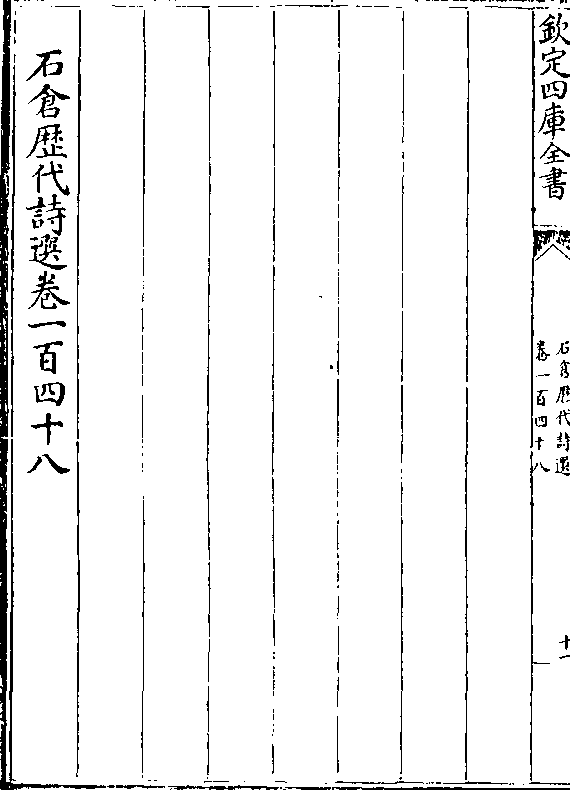 欽定四庫全書
石倉歴代詩選
卷一百四十八
十一
石倉歴代詩選卷一百四十八